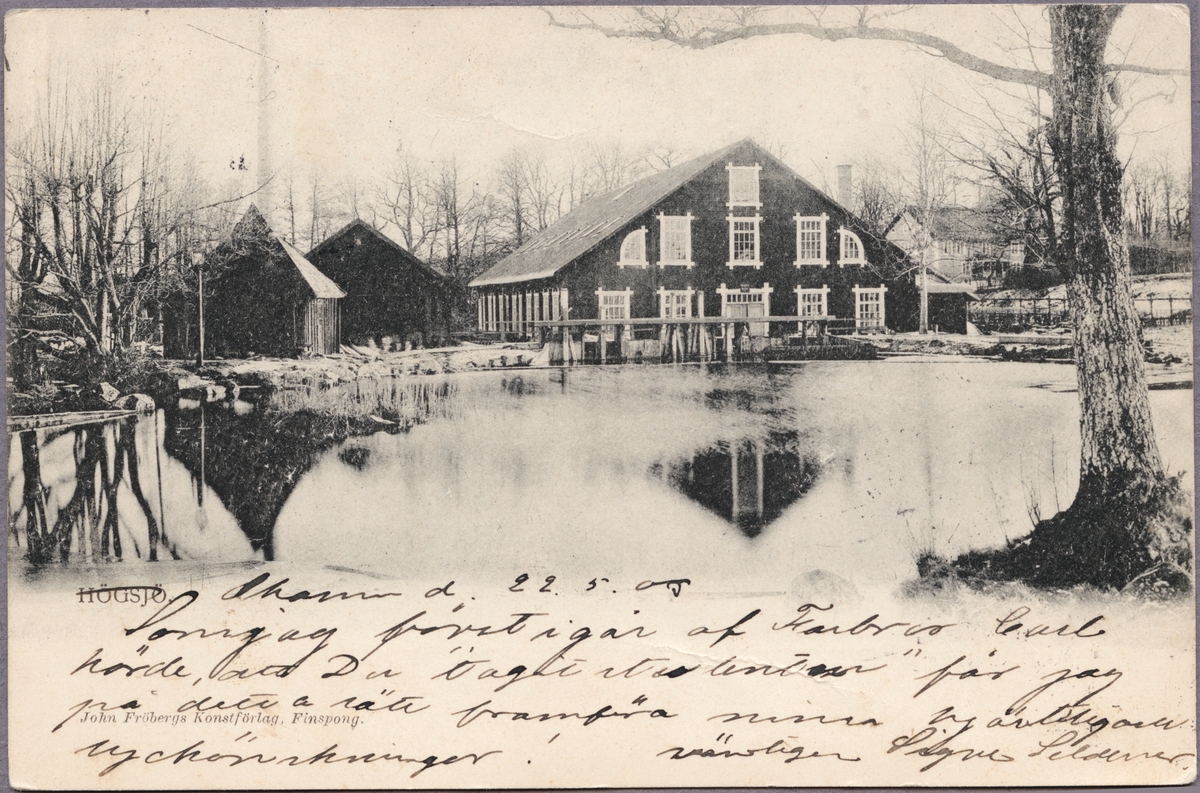 HÖGSJÖ. d. 22. 5. 05
Som jag först igår af Farbror Carl
hörde, att Du "tagit studenten" får jag
på detta sätt framföra mina hjärtligaste
lyckönskningar!
John Fröbergs Konstförlag, Finspong.
vänligen Signe